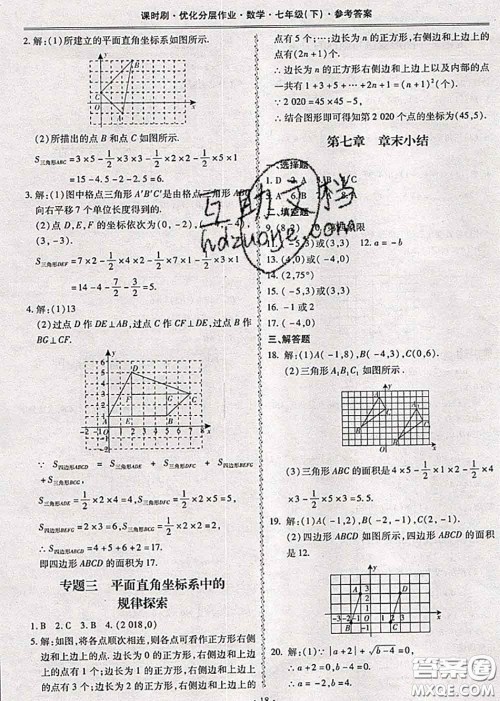 课时刷·优化分层作业·数学·七年级(下)·参考答案
2.解:(1)所建立的平面直角坐标系如图所示.
(2)所描出的点B和点C如图所示.
S三角形ABC=3×5-1/2×3×2-1/2×2×5-1/2×5×1
=15-3-5-2.5=4.5.
3.解:(1)图中格点三角形A′B′C′是由格点三角形A
向右平移7个单位长度得到的.
(2)点D,E,F的坐标依次为(0,-2),(-4,
(3,-3).
S三角形DEF=7×2-1/2×4×2-1/2×7×1-1/2×3×1
=14-4-7/2-3/2=5.
4.解:(1)13
(2)过点D作DE⊥AB,过点C作CF⊥DE,过点B作
BG⊥CF,如图所示.
∵S四边形ABCD=S三角形ADE+S三角形CDF+S四边形BEFG+
S三角形BCG,
S三角形ADE=1/2×2×4=4,S三角形CDF=1/2×2×5=5,
S四边形BEFG=2×3=6,S三角形BCG=1/2×2×2=2,
∴S四边形ABCD=4+5+6+2=17.
即四边形ABCD的面积为17.
专题三 平面直角坐标系中的
规律探索
1.B 2.C 3.C 4.(2 018,0)
5.解:如图,将各点顺次相连,则各点可看作正方形右侧
边和上边上的点.边长为0的正方形,右侧边和上边
上的点有1个;边长为1的正方形,右侧边和上边上的
点有3个;边长为2的正方形,右侧边和上边上的
点有5个;…;边长为n的正方形,右侧边和上边上的
点有(2n+1)个.
∴边长为n的正方形,右侧边和上边上以及内部的点
一共有1+3+5+…+2n+1=(n+1)²(个).
∵2 020=45×45-5,
∴结合图形即可得知第2 020个点的坐标为(45,5).
第七章 章末小结
一、选择题
二、填空题
13.(4,0)或(-4,0)
14.(2,75°)
15.(-5,3)或(3,3)
16.-1或2
17.(-4,0)
三、解答题
18.解:(1)A(-1,8),B(-4,3),C(0,6).
(2)三角形A₁B₁C₁如图所示.
19.解:(1)
(2)四边形ABCD如图所示,四边形ABCD的面积
是12.
20.解:(1)∵|a+2|+√(b-4)=0,
∴a+2=0,b-4=0,
18
互助文档
hdzuoye.com
答案圈
MXQE.COM